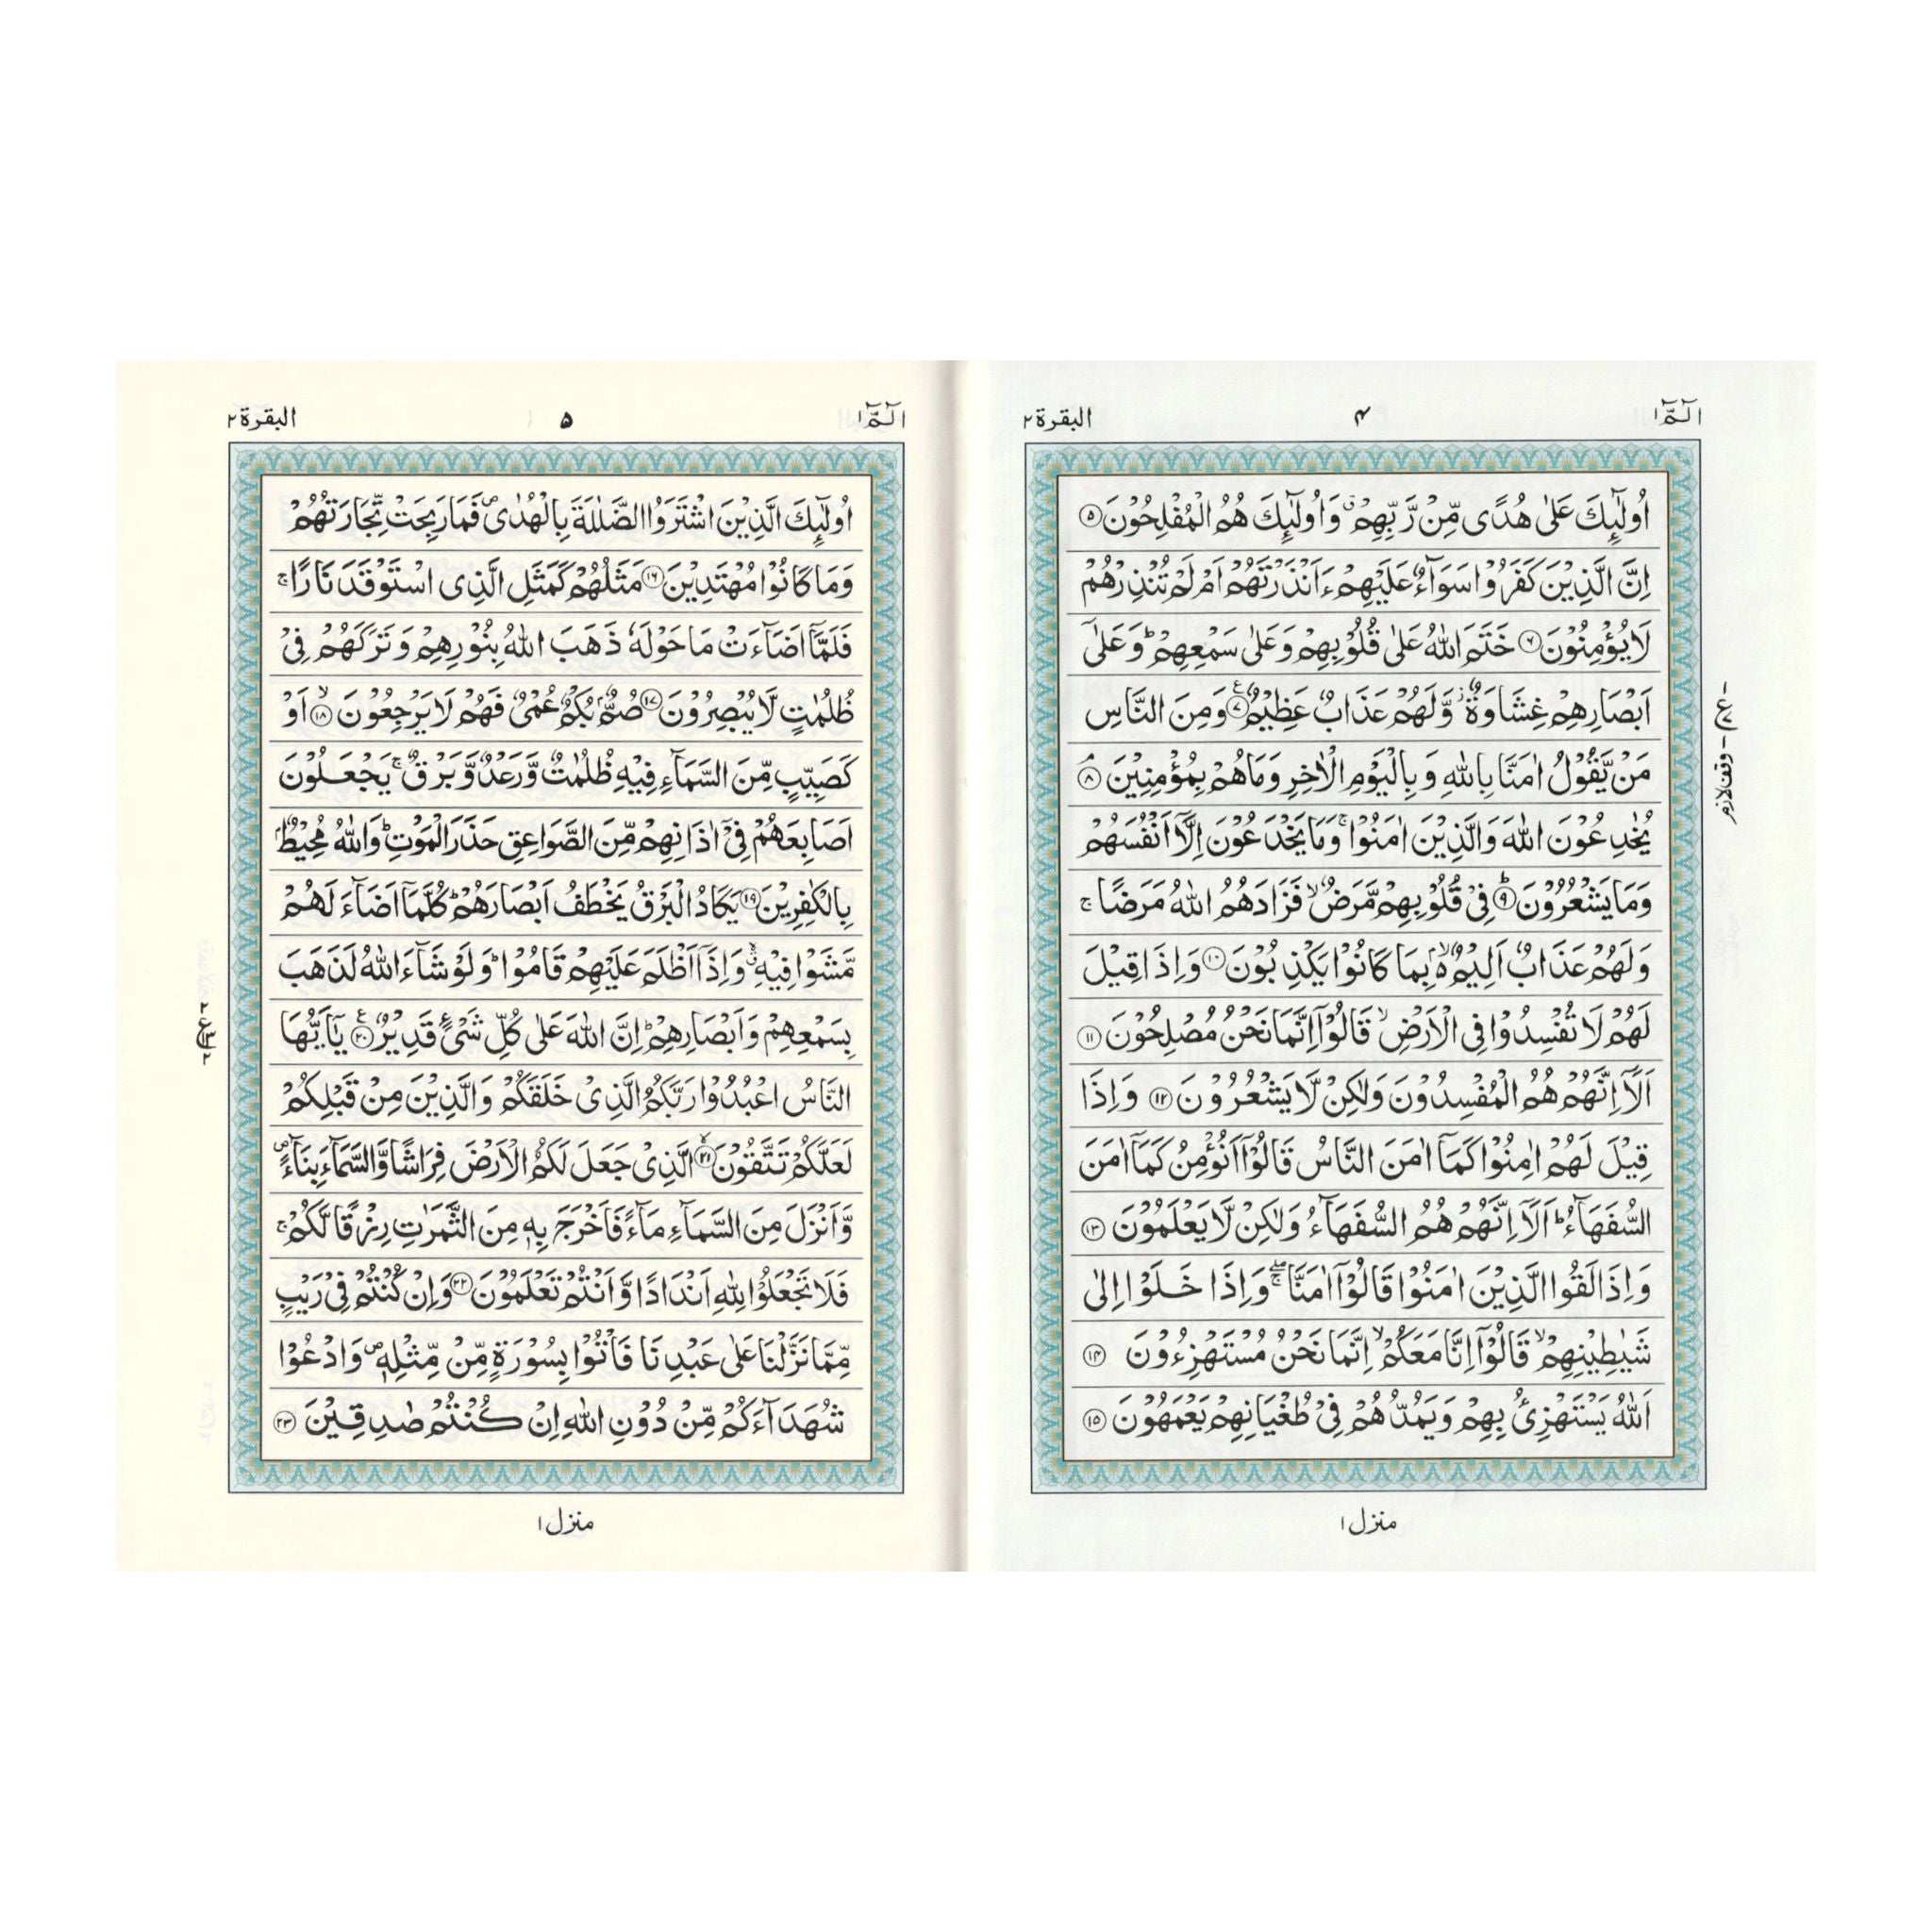 الٓمّٓ ۱
۴
البقرة ۲
اُولٰٓئِكَ عَلٰى هُدًى مِّنْ رَّبِّهِمْ ۗ وَاُولٰٓئِكَ هُمُ الْمُفْلِحُوْنَ ۵
اِنَّ الَّذِيْنَ كَفَرُوْا سَوَآءٌ عَلَيْهِمْ ءَاَنْذَرْتَهُمْ اَمْ لَمْ تُنْذِرْهُمْ
لَا يُؤْمِنُوْنَ ۶ خَتَمَ اللّٰهُ عَلٰى قُلُوْبِهِمْ وَعَلٰى سَمْعِهِمْ ؕ وَعَلٰٓى
اَبْصَارِهِمْ غِشَاوَةٌ ز وَّلَهُمْ عَذَابٌ عَظِيْمٌ ۷ ع وَمِنَ النَّاسِ
مَنْ يَّقُوْلُ اٰمَنَّا بِاللّٰهِ وَبِالْيَوْمِ الْاٰخِرِ وَمَا هُمْ بِمُؤْمِنِيْنَ ۘ ۸
يُخٰدِعُوْنَ اللّٰهَ وَالَّذِيْنَ اٰمَنُوْا ۚ وَمَا يَخْدَعُوْنَ اِلَّآ اَنْفُسَهُمْ
وَمَا يَشْعُرُوْنَ ؕ ۹ فِيْ قُلُوْبِهِمْ مَّرَضٌ ۙ فَزَادَهُمُ اللّٰهُ مَرَضًا ۚ
وَلَهُمْ عَذَابٌ اَلِيْمٌ ۢۙ بِمَا كَانُوْا يَكْذِبُوْنَ ۱۰ وَاِذَا قِيْلَ
لَهُمْ لَا تُفْسِدُوْا فِى الْاَرْضِ ۙ قَالُوْٓا اِنَّمَا نَحْنُ مُصْلِحُوْنَ ۱۱
اَلَآ اِنَّهُمْ هُمُ الْمُفْسِدُوْنَ وَلٰكِنْ لَّا يَشْعُرُوْنَ ۱۲ وَاِذَا
قِيْلَ لَهُمْ اٰمِنُوْا كَمَآ اٰمَنَ النَّاسُ قَالُوْٓا اَنُؤْمِنُ كَمَآ اٰمَنَ
السُّفَهَآءُ ؕ اَلَآ اِنَّهُمْ هُمُ السُّفَهَآءُ وَلٰكِنْ لَّا يَعْلَمُوْنَ ۱۳
وَاِذَا لَقُوا الَّذِيْنَ اٰمَنُوْا قَالُوْٓا اٰمَنَّا ۖۚ وَاِذَا خَلَوْا اِلٰى
شَيٰطِيْنِهِمْ ۙ قَالُوْٓا اِنَّا مَعَكُمْ ۙ اِنَّمَا نَحْنُ مُسْتَهْزِءُوْنَ ۱۴
اَللّٰهُ يَسْتَهْزِئُ بِهِمْ وَيَمُدُّهُمْ فِيْ طُغْيَانِهِمْ يَعْمَهُوْنَ ۱۵
وقف لازم
منزل ۱
الٓمّٓ ۱
۵
البقرة ۲
اُولٰٓئِكَ الَّذِيْنَ اشْتَرَوُا الضَّلٰلَةَ بِالْهُدٰى ۪ فَمَا رَبِحَتْ تِّجَارَتُهُمْ
وَمَا كَانُوْا مُهْتَدِيْنَ ۱۶ مَثَلُهُمْ كَمَثَلِ الَّذِى اسْتَوْقَدَ نَارًا ۚ
فَلَمَّآ اَضَآءَتْ مَا حَوْلَهٗ ذَهَبَ اللّٰهُ بِنُوْرِهِمْ وَتَرَكَهُمْ فِيْ
ظُلُمٰتٍ لَّا يُبْصِرُوْنَ ۱۷ صُمٌّۢ بُكْمٌ عُمْىٌ فَهُمْ لَا يَرْجِعُوْنَ ۙ ۱۸ اَوْ
كَصَيِّبٍ مِّنَ السَّمَآءِ فِيْهِ ظُلُمٰتٌ وَّرَعْدٌ وَّبَرْقٌ ۚ يَجْعَلُوْنَ
اَصَابِعَهُمْ فِيْٓ اٰذَانِهِمْ مِّنَ الصَّوَاعِقِ حَذَرَ الْمَوْتِ ؕ وَاللّٰهُ مُحِيْطٌۢ
بِالْكٰفِرِيْنَ ۱۹ يَكَادُ الْبَرْقُ يَخْطَفُ اَبْصَارَهُمْ ؕ كُلَّمَآ اَضَآءَ لَهُمْ
مَّشَوْا فِيْهِ ۙۗ وَاِذَآ اَظْلَمَ عَلَيْهِمْ قَامُوْا ؕ وَلَوْ شَآءَ اللّٰهُ لَذَهَبَ
بِسَمْعِهِمْ وَاَبْصَارِهِمْ ؕ اِنَّ اللّٰهَ عَلٰى كُلِّ شَىْءٍ قَدِيْرٌ ۲۰ ع يٰٓاَيُّهَا
النَّاسُ اعْبُدُوْا رَبَّكُمُ الَّذِيْ خَلَقَكُمْ وَالَّذِيْنَ مِنْ قَبْلِكُمْ
لَعَلَّكُمْ تَتَّقُوْنَ ۙ ۲۱ الَّذِيْ جَعَلَ لَكُمُ الْاَرْضَ فِرَاشًا وَّالسَّمَآءَ بِنَآءً ۪
وَّاَنْزَلَ مِنَ السَّمَآءِ مَآءً فَاَخْرَجَ بِهٖ مِنَ الثَّمَرٰتِ رِزْقًا لَّكُمْ ۚ
فَلَا تَجْعَلُوْا لِلّٰهِ اَنْدَادًا وَّاَنْتُمْ تَعْلَمُوْنَ ۲۲ وَاِنْ كُنْتُمْ فِيْ رَيْبٍ
مِّمَّا نَزَّلْنَا عَلٰى عَبْدِنَا فَاْتُوْا بِسُوْرَةٍ مِّنْ مِّثْلِهٖ ۪ وَادْعُوْا
شُهَدَآءَكُمْ مِّنْ دُوْنِ اللّٰهِ اِنْ كُنْتُمْ صٰدِقِيْنَ ۲۳
منزل ۱